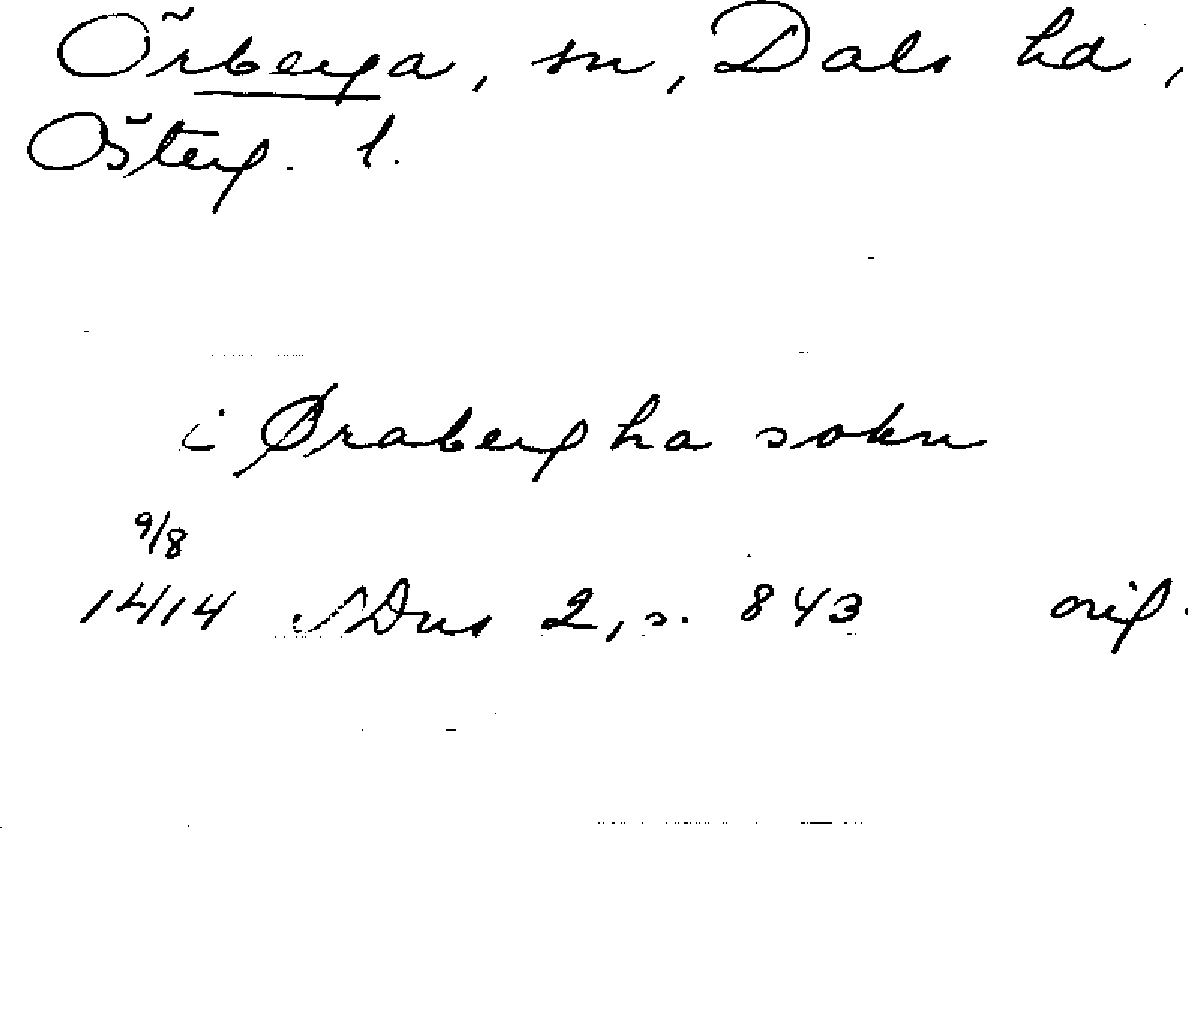 Örberga, sn, Dals hd,
Österg. l.
i Ørabergha sokn
9/8
1414 SDns 2, s. 843 orig.